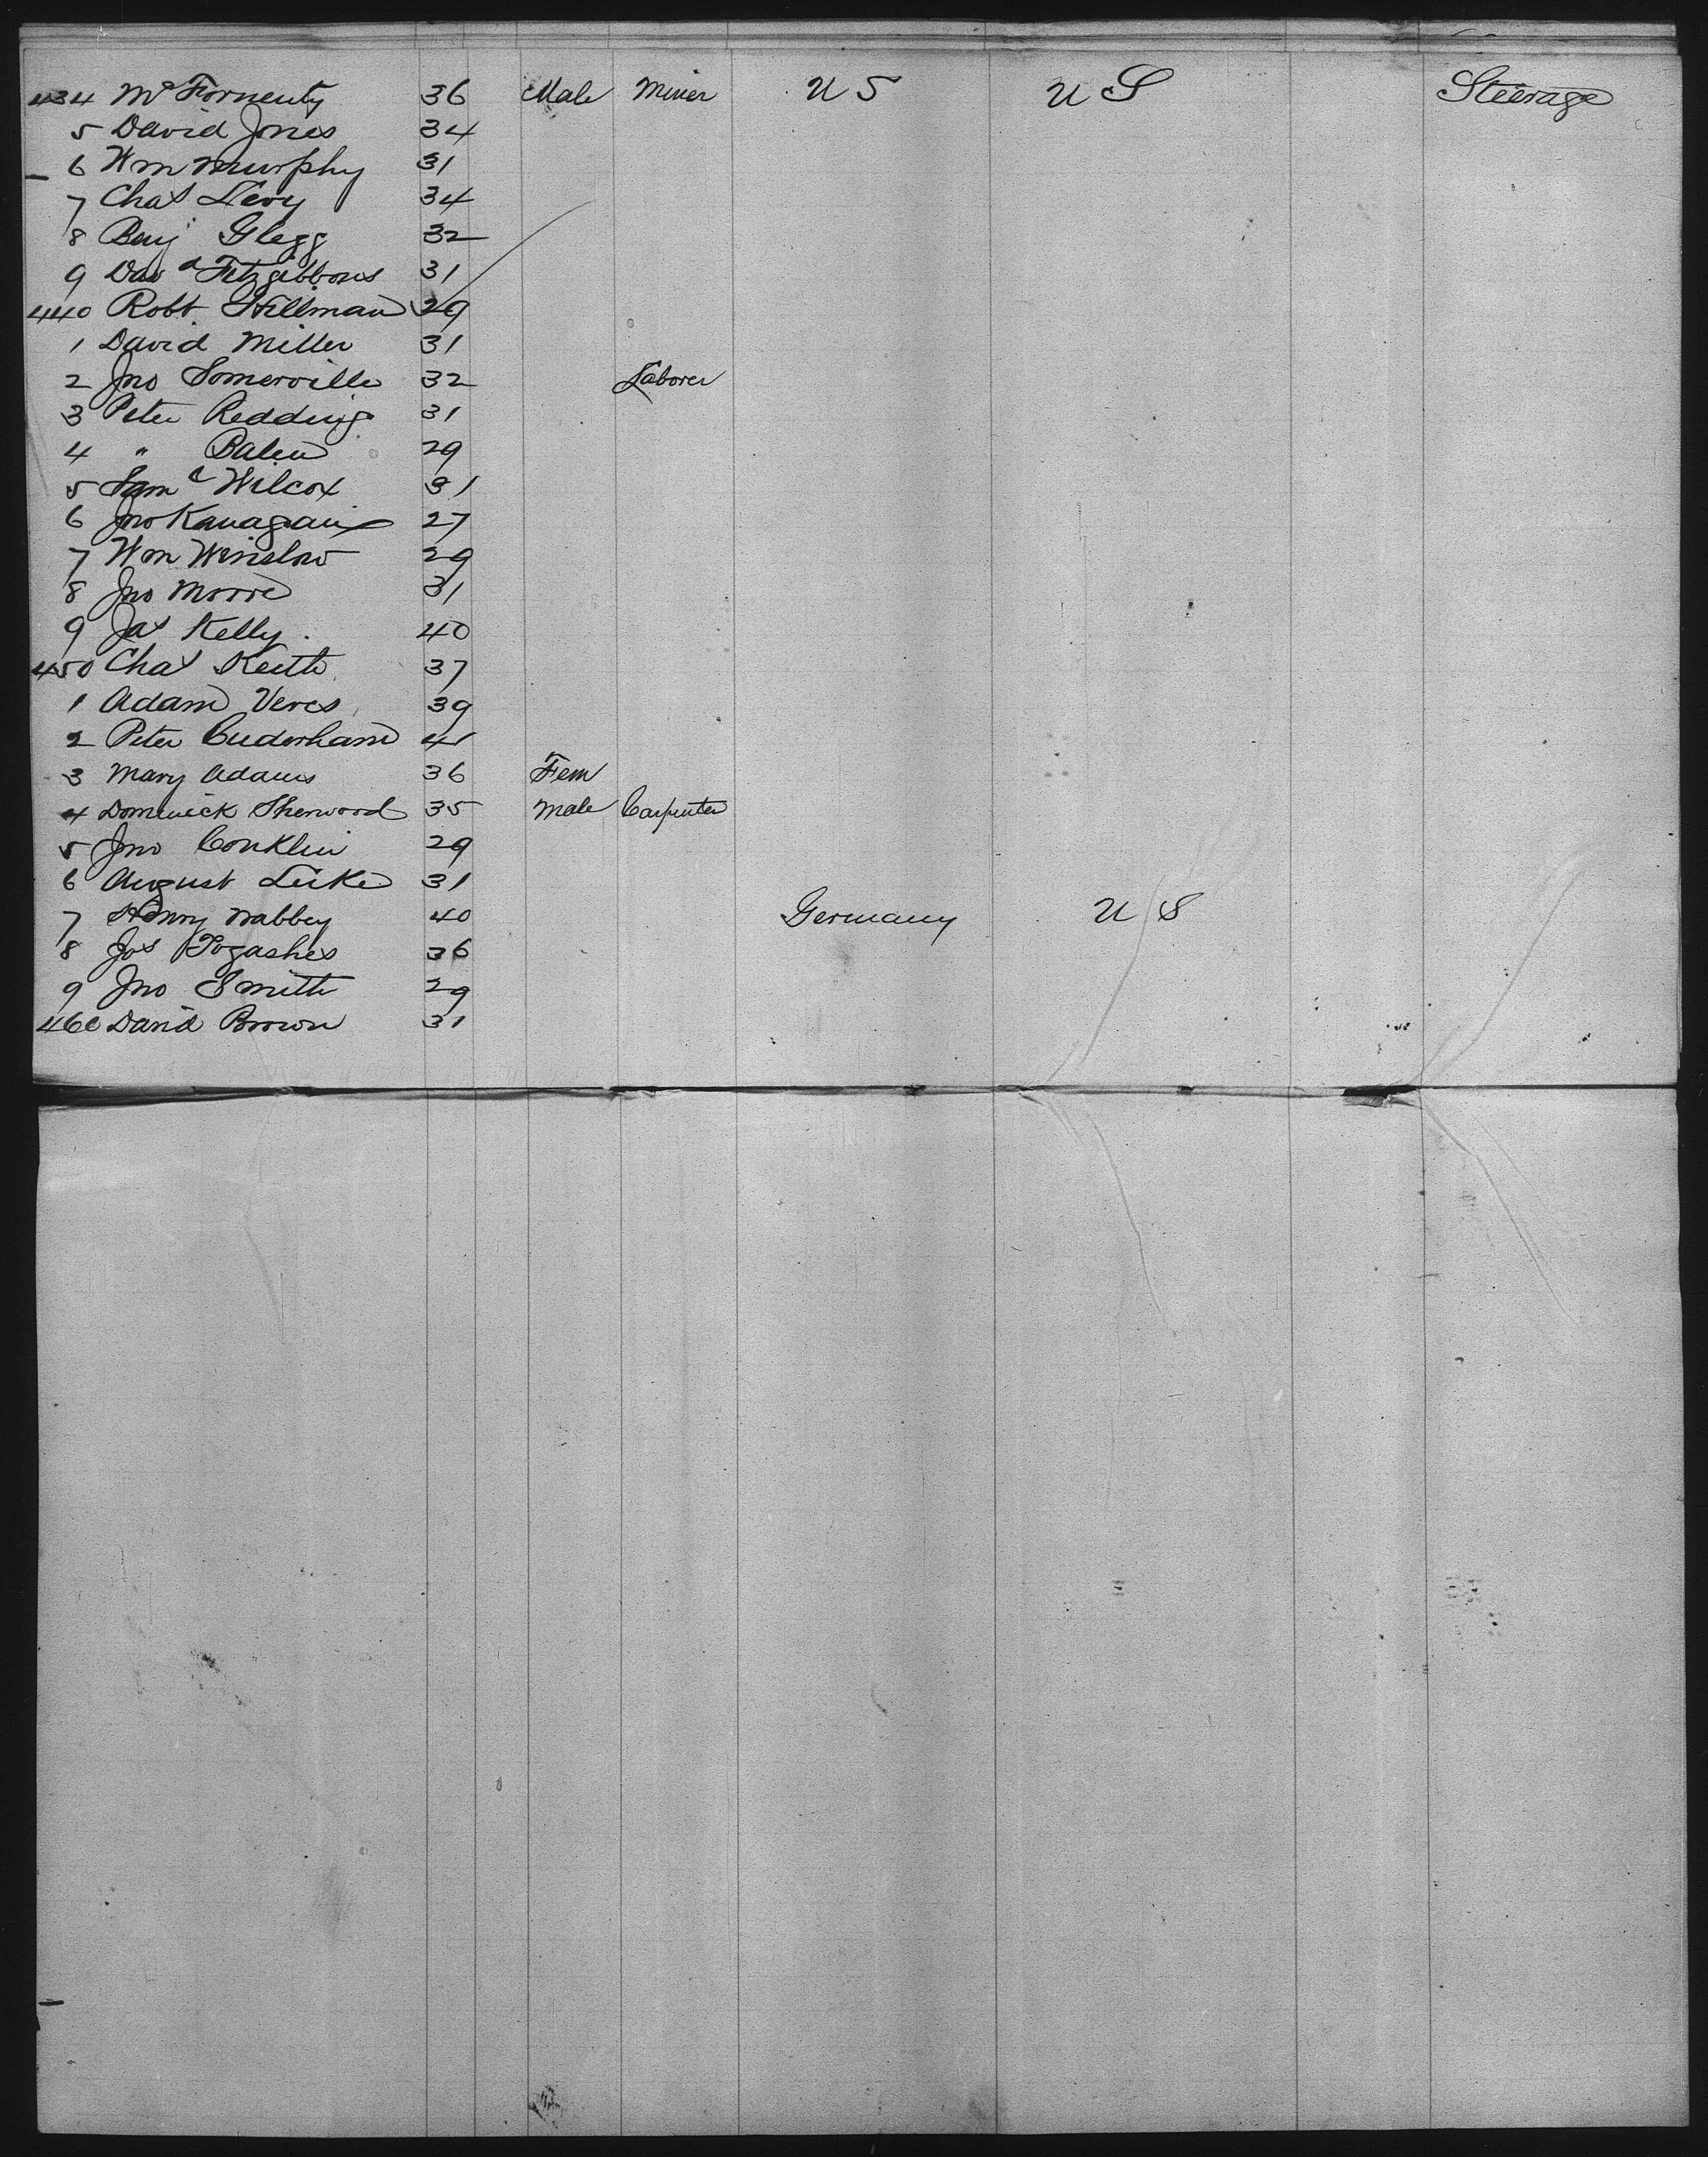 434 Mc Fornenty 36 Male Miner U S U S Steerage
5 David Jones 34
6 Wm Murphy 31
7 Chas Levy 34
8 Benj Glegg 32
9 Davd Fitzgibbons 31
440 Robt Hillman 29
1 David Miller 31
2 Jno Somerville 32 Laborer
3 Peter Redding 31
4 " Balen 29
5 Saml Wilcox 31
6 Jno 27
7 Wm Winslow 29
8 Jno Moore 31
9 Jas Kelly 40
450 Chas Keith 37
1 Adam Veres 39
2 Peter Cuderhand 41
3 Mary Adams 36 Fem
4 Dominick Sherwood 35 Male Carpenter
5 Jno Conklin 29
6 August Luke 31
7 Henry Nabbey 40 Germany U S
8 Jos 36
9 Jno Smith 29
460 David Brown 31